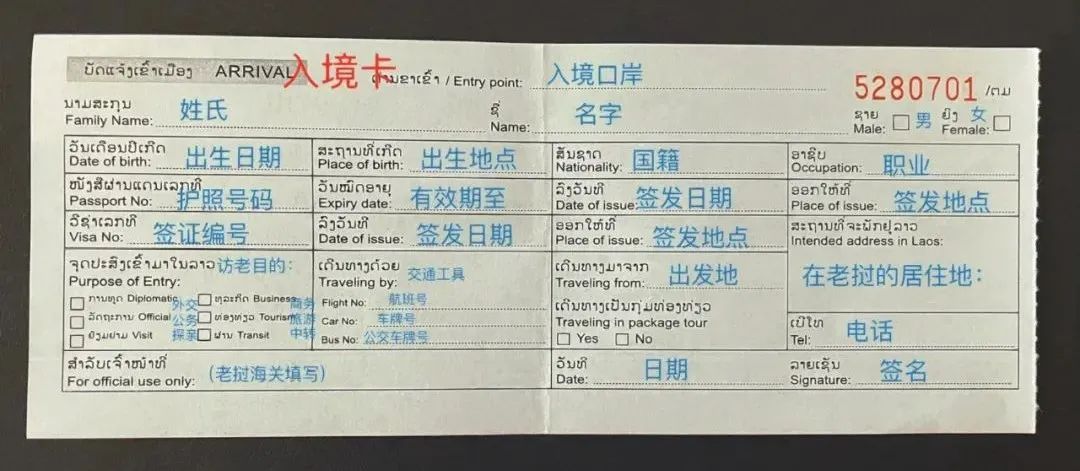 ບັດແຈ້ງເຂົ້າເມືອງ ARRIVAL 入境卡 ດ່ານຂາເຂົ້າ / Entry point: 入境口岸 5280701 /ຕມ
ນາມສະກຸນ ຊື່ ຊາຍ ຍິງ
Family Name: 姓氏 Name: 名字 Male: 男 Female: 女
ວັນເດືອນປີເກີດ ສະຖານທີ່ເກີດ ສັນຊາດ ອາຊີບ
Date of birth: 出生日期 Place of birth: 出生地点 Nationality: 国籍 Occupation: 职业
ໜັງສືຜ່ານແດນເລກທີ ວັນໝົດອາຍຸ ລົງວັນທີ ອອກໃຫ້ທີ່
Passport No: 护照号码 Expiry date: 有效期至 Date of issue: 签发日期 Place of issue: 签发地点
ວີຊ່າເລກທີ ລົງວັນທີ ອອກໃຫ້ທີ່ ສະຖານທີ່ຈະພັກຢູ່ລາວ
Visa No: 签证编号 Date of issue: 签发日期 Place of issue: 签发地点 Intended address in Laos:
ຈຸດປະສົງເຂົ້າມາໃນລາວ 访老目的: ເດີນທາງດ້ວຍ ເດີນທາງມາຈາກ
Purpose of Entry: Traveling by: 交通工具 Traveling from: 出发地 在老挝的居住地:
ການທູດ Diplomatic 外交 ທຸລະກິດ Business 商务 Flight No: 航班号 ເດີນທາງເປັນກຸ່ມທ່ອງທ່ຽວ
ລັດຖະການ Official 公务 ທ່ອງທ່ຽວ Tourism 旅游 Car No: 车牌号 Traveling in package tour ເບີໂທ
ຢ້ຽມຢາມ Visit 探亲 ຜ່ານ Transit 中转 Bus No: 公交车牌号 Yes No Tel: 电话
ສຳລັບເຈົ້າໜ້າທີ່ ວັນທີ ລາຍເຊັນ
For official use only: (老挝海关填写) Date: 日期 Signature: 签名